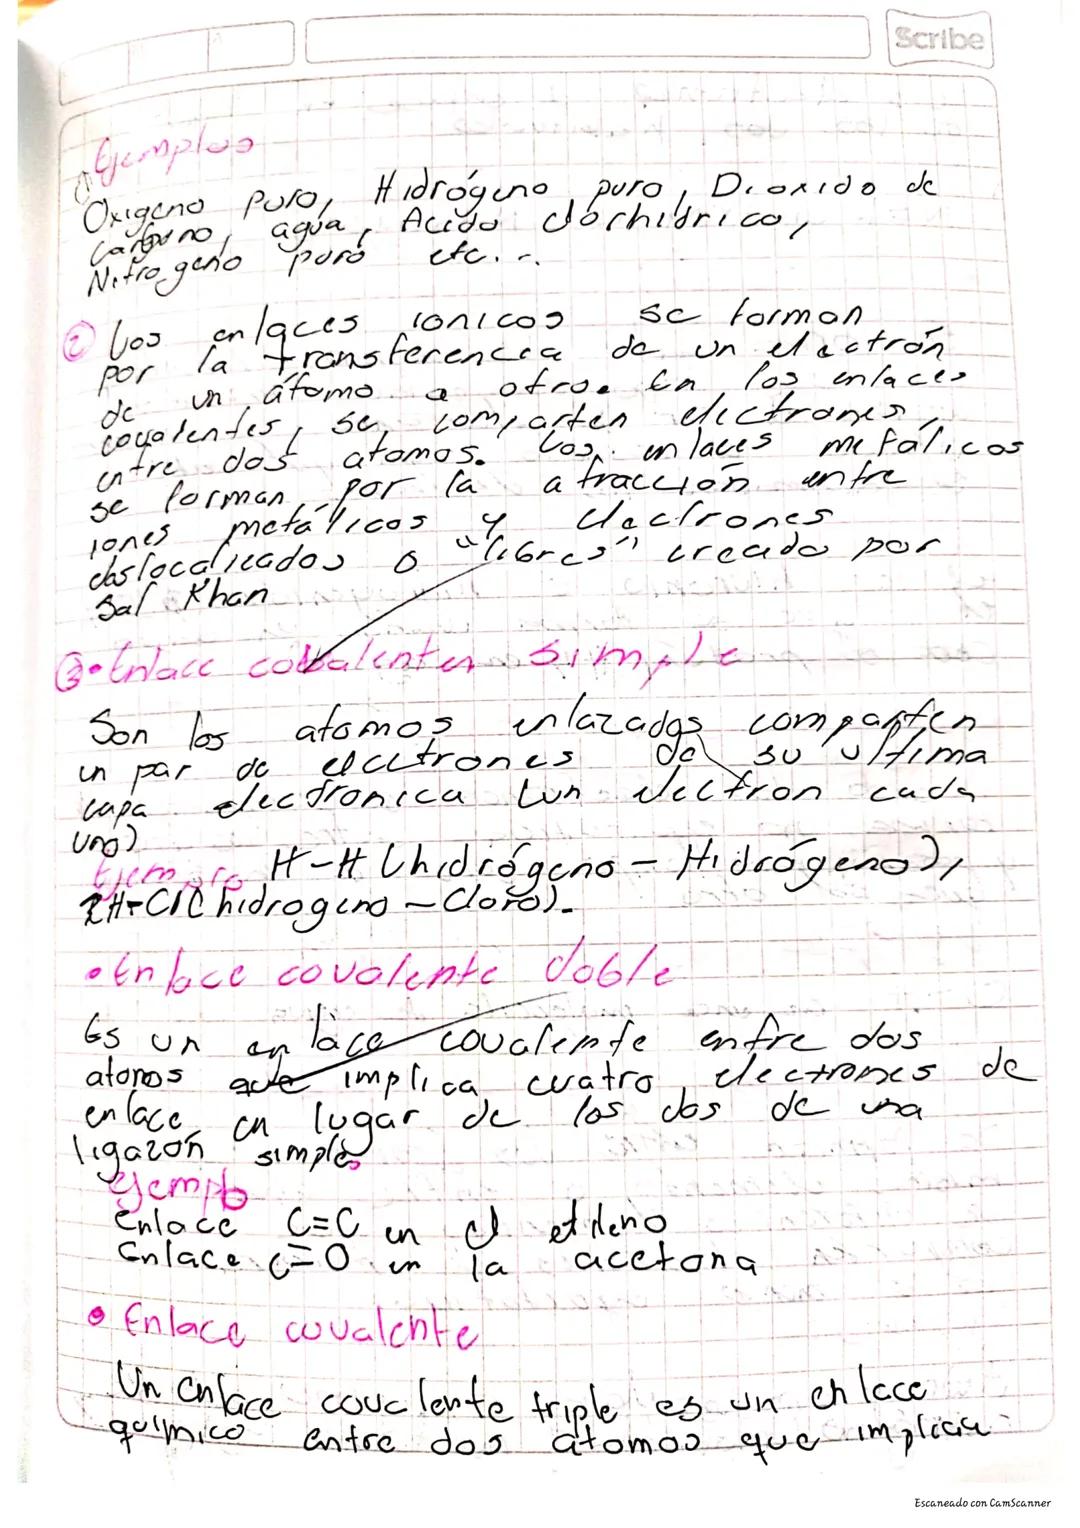 Scribe
Ejemplos
Oxigeno puro, Hidrógeno puro, Dioxido de
Carbono, agua, Acido clorhidrico,
Nitrogeno puro etc...
② Los enlaces ionicos se forman
por la transferencia de un electrón
de un átomo a otro. En los enlaces
covalentes, se comparten electrones,
entre dos atomos. Los enlaces metálicos
se forman por la atracción entre
iones metálicos y electrones
deslocalicados o "libres" creado por
Sal Khan
③• Enlace covalenten simple
Son los atomos enlazados comparten
un par de electrones de su ultima
capa electronica (un electron cada
uno)
Ejemplo H-H (hidrógeno - Hidrógeno),
H-Cl(hidrogeno - Cloro).
• Enlace covalente doble
Es un enlace covalente entre dos
atomos que implica cuatro electrones de
enlace en lugar de los dos de una
ligazón simple
Ejemplo
Enlace C=C en el etileno
Enlace C=O en la acetona
• Enlace covalente
Un enlace covalente triple es un enlace
químico entre dos átomos que implica
Escaneado con CamScanner